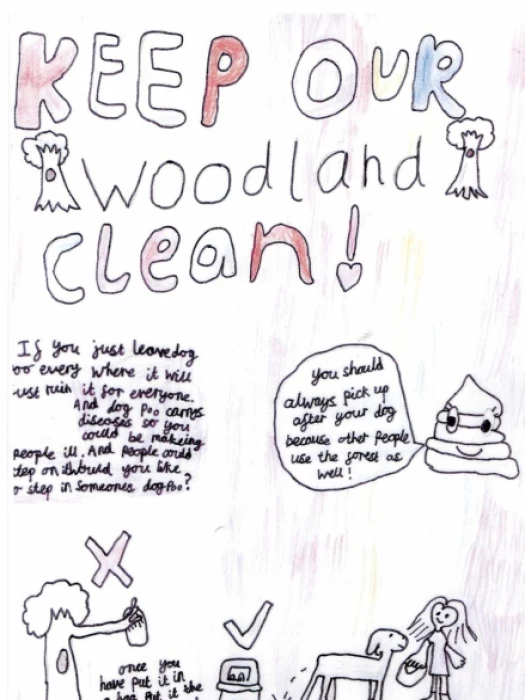 KEEP OUR
woodland
clean!
If you just leave dog
poo every where it will
just ruin it for everyone.
And dog Poo carrys
diseases so you
could be makeing
people ill. And people could
step on it would you like
to step in someones dog Poo?
you should
always pick up
after your dog
because other people
use the forest as
well!
once you
have put it in
a bag Put it the